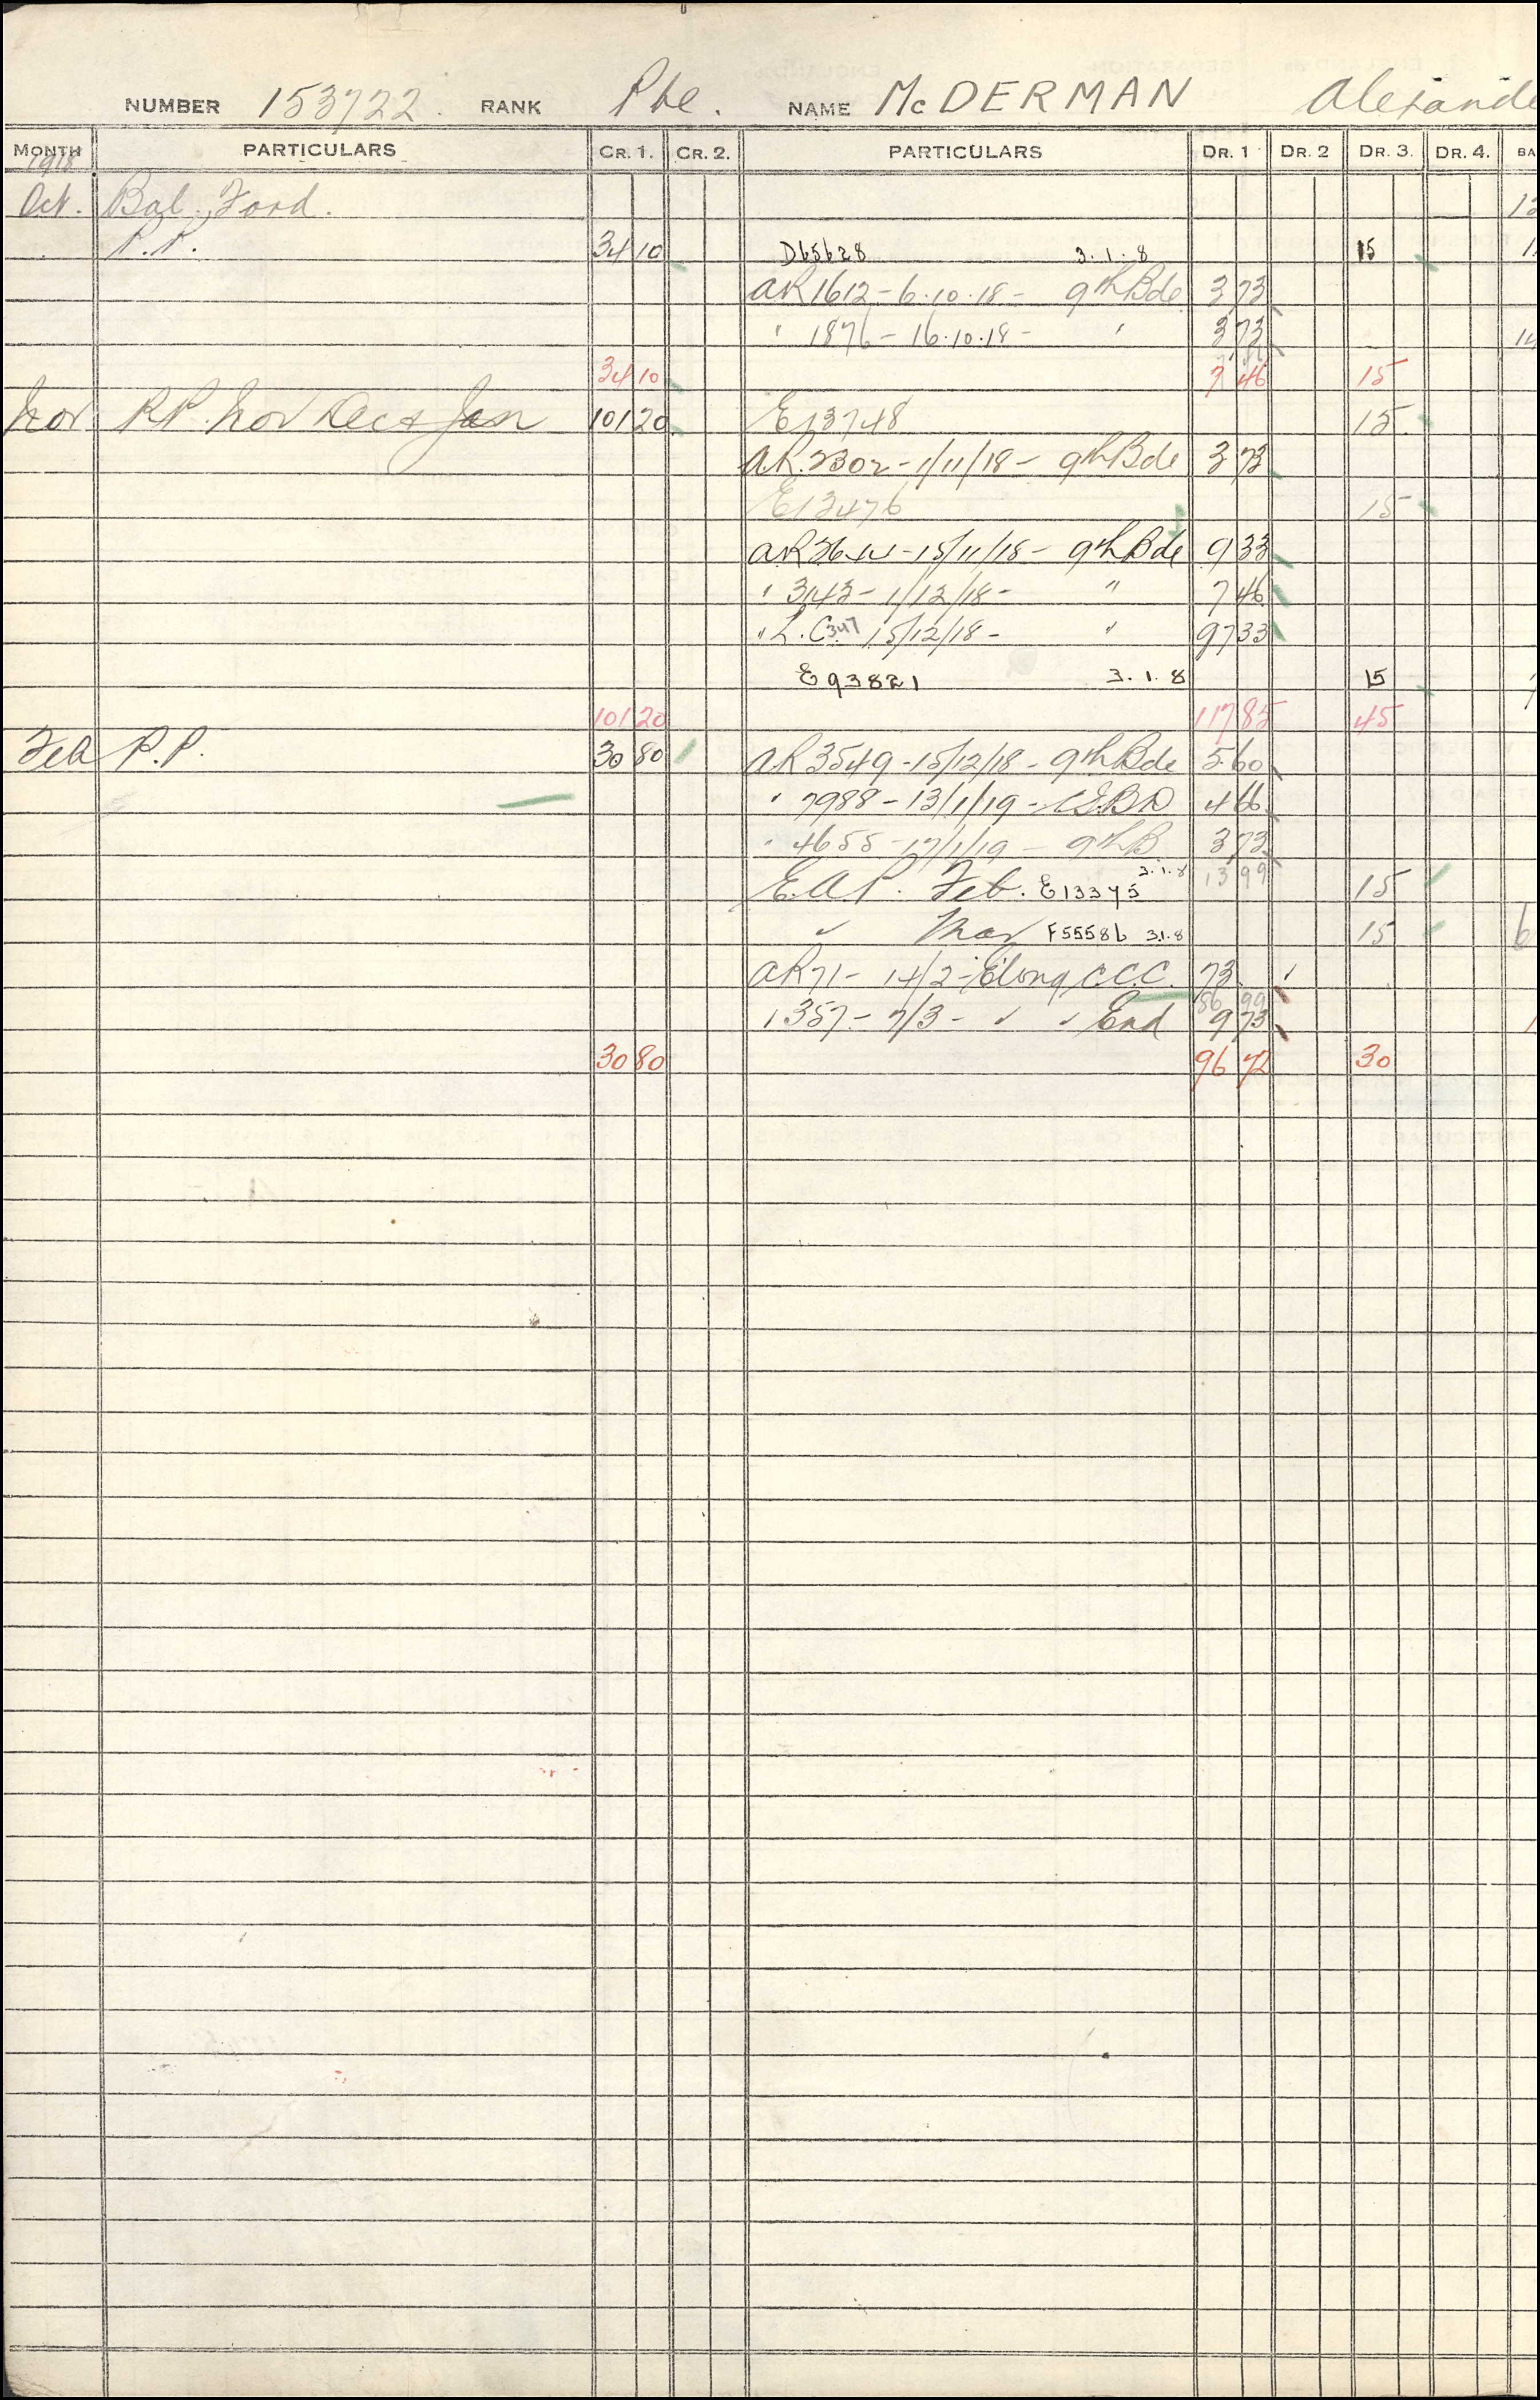 NUMBER 153722. RANK Pte. NAME McDERMAN Alexande
MONTH PARTICULARS CR. 1. CR. 2. PARTICULARS DR. 1 DR. 2 DR. 3. DR. 4. BA
1918
Oct. Bal. Ford. 12
P.P. 34 10 D65628 3.1.8 15 1
AR 1612 - 6.10.18 - 9th Bde 3 73
" 1876 - 16.10.18 - " 3 73 14
34 10 7 46 15
Nov. P.P. Nov Dec & Jan 101 20 E13748 15
AR. 2302 - 1/11/18 - 9th Bde 3 73
E13476 15
AR 2644 - 15/11/18 - 9th Bde 9 33
" 3143 - 1/12/18 - " 7 46
" L.C. 347 15/12/18 - " 97 33
E93821 3.1.8 15
101 20 117 85 45
Feb P.P. 30 80 AR 3549 - 15/12/18 - 9th Bde 5 60
" 7988 - 13/1/19 - 4 66
" 4655 - 17/1/19 - 9th B 3 73
E.A.P. Feb. E13375 3.1.8 13 99 15
" Mar F55586 3.1.8 15 6
AR 71 - 14/2 - C.C.C. 73
86 99
1357 - 7/3 - " " End 9 73
30 80 96 72 30